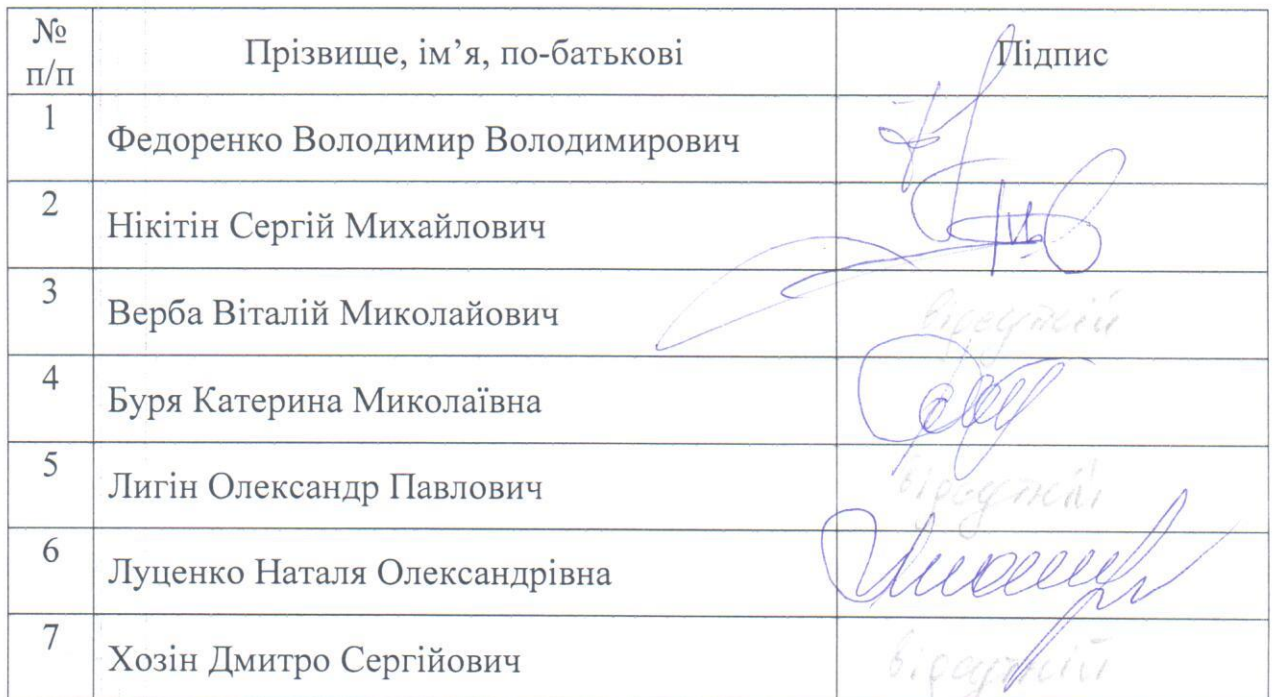 № п/п Прізвище, ім’я, по-батькові Підпис
1 Федоренко Володимир Володимирович
2 Нікітін Сергій Михайлович
3 Верба Віталій Миколайович відсутній
4 Буря Катерина Миколаївна
5 Лигін Олександр Павлович відсутній
6 Луценко Наталя Олександрівна
7 Хозін Дмитро Сергійович відсутній